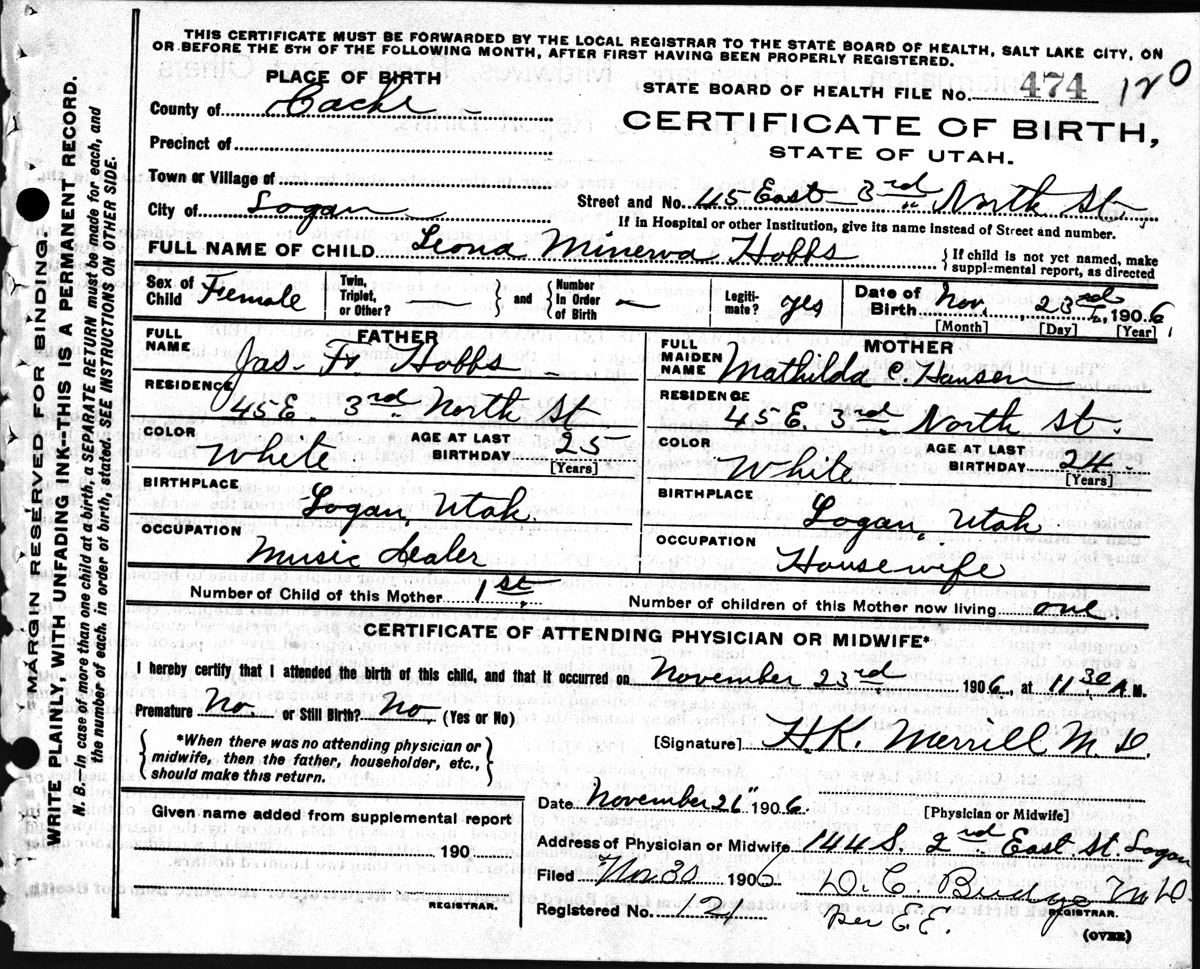 THIS CERTIFICATE MUST BE FORWARDED BY THE LOCAL REGISTRAR TO THE STATE BOARD OF HEALTH, SALT LAKE CITY, ON
OR BEFORE THE 5TH OF THE FOLLOWING MONTH, AFTER FIRST HAVING BEEN PROPERLY REGISTERED.
PLACE OF BIRTH
STATE BOARD OF HEALTH FILE No. 474 120
County of Cache
CERTIFICATE OF BIRTH,
STATE OF UTAH.
Precinct of
Town or Village of
Street and No. 45 East 3rd North St.
City of Logan
If in Hospital or other Institution, give its name instead of Street and number.
FULL NAME OF CHILD Leona Minerva Hobbs { If child is not yet named, make supplemental report, as directed
Sex of Child Female
Twin, Triplet, or Other? —
} and { Number In Order of Birth —
Legiti-mate? yes
Date of Birth Nov. 23rd, 1906
[Month] [Day] [Year]
FATHER
FULL NAME Jas. Fr. Hobbs
RESIDENCE 45 E. 3rd North St
COLOR White
AGE AT LAST BIRTHDAY 25
[Years]
BIRTHPLACE Logan, Utah.
OCCUPATION Music dealer
MOTHER
FULL MAIDEN NAME Mathilda C. Hansen
RESIDENCE 45 E. 3rd North St.
COLOR White
AGE AT LAST BIRTHDAY 24
[Years]
BIRTHPLACE Logan, Utah
OCCUPATION Housewife
Number of Child of this Mother 1st. Number of children of this Mother now living one.
CERTIFICATE OF ATTENDING PHYSICIAN OR MIDWIFE*
I hereby certify that I attended the birth of this child, and that it occurred on November 23rd, 1906, at 11 30 A.M.
Premature No. or Still Birth? No, (Yes or No)
{ *When there was no attending physician or
midwife, then the father, householder, etc.,
should make this return. }
[Signature] H.K. Merrill M.D.
[Physician or Midwife]
Date November 26" 1906.
Given name added from supplemental report
190
REGISTRAR.
Address of Physician or Midwife 144 S. 2nd East St. Logan
Filed Nov 30 1906 D. C. Budge M D
REGISTRAR.
Registered No. 121 Per E.E.
(OVER)
MARGIN RESERVED FOR BINDING
WRITE PLAINLY, WITH UNFADING INK--THIS IS A PERMANENT RECORD.
N. B.—In case of more than one child at a birth, a SEPARATE RETURN must be made for each, and
the number of each, in order of birth, stated. SEE INSTRUCTIONS ON OTHER SIDE.